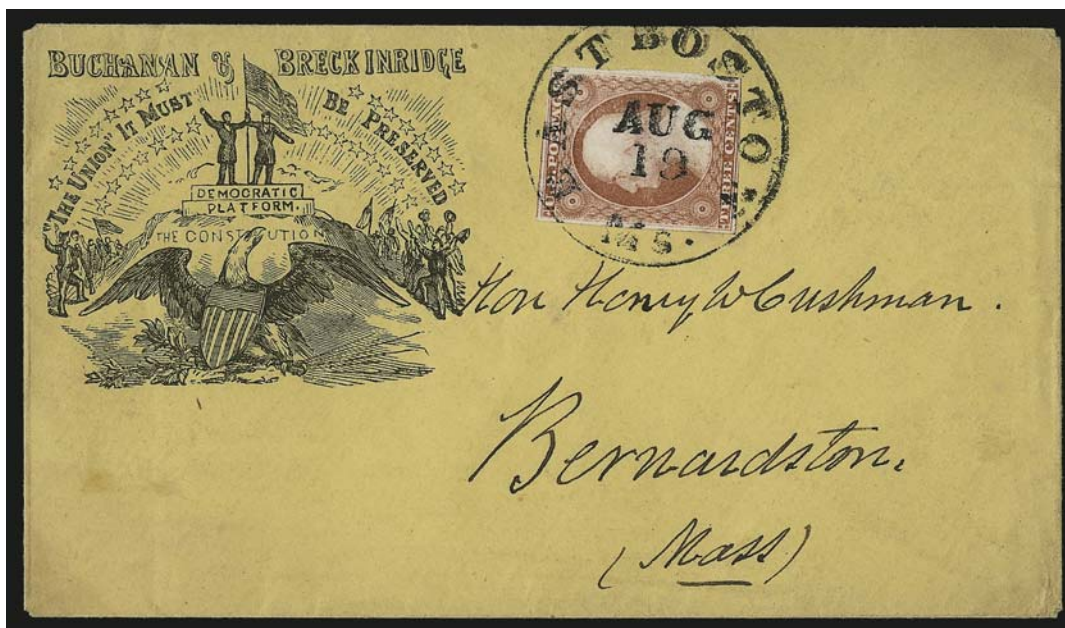 BUCHANAN & BRECKINRIDGE
"THE UNION" IT MUST BE PRESERVED
DEMOCRATIC
PLATFORM.
THE CONSTITUTION
EAST BOSTON
AUG
19
MS.
U.S. POSTAGE
THREE CENTS
Hon Henry W Cushman.
Bernardston.
(Mass)